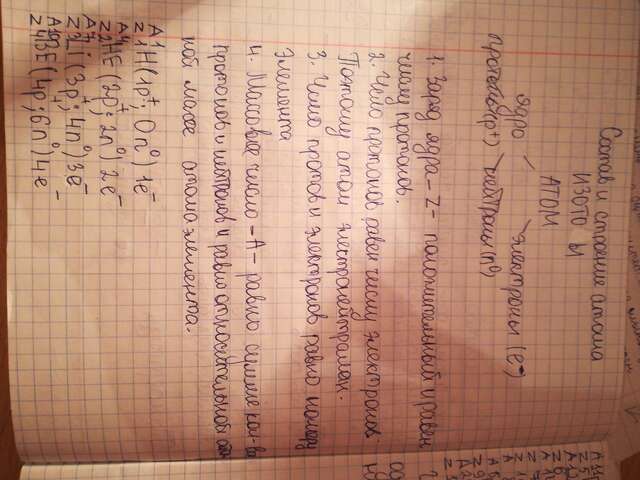 Состав и строение атома
ИЗОТО Ы
АТОМ
ядро электроны (e⁻)
протоны (p+) нейтроны (n⁰)
1. Заряд ядра - Z - положительный и равен
числу протонов.
2. Число протонов равен числу электронов.
Поэтому атом электронейтрален.
3. Число протов и электронов равно номеру
элемента
4. Массовое число - А - равно сумме кол-ва
протонов и нейтронов и равно относительной атом
ной массе атома элемента.
A 1
Z 1 H (1p⁺; 0n⁰) 1e⁻
A 4
Z 2 HE (2p⁺; 2n⁰) 2e⁻
A 7
Z 3 Li (3p⁺; 4n⁰) 3e⁻
A 10
Z 4 BE (4p⁺; 6n⁰) 4e⁻